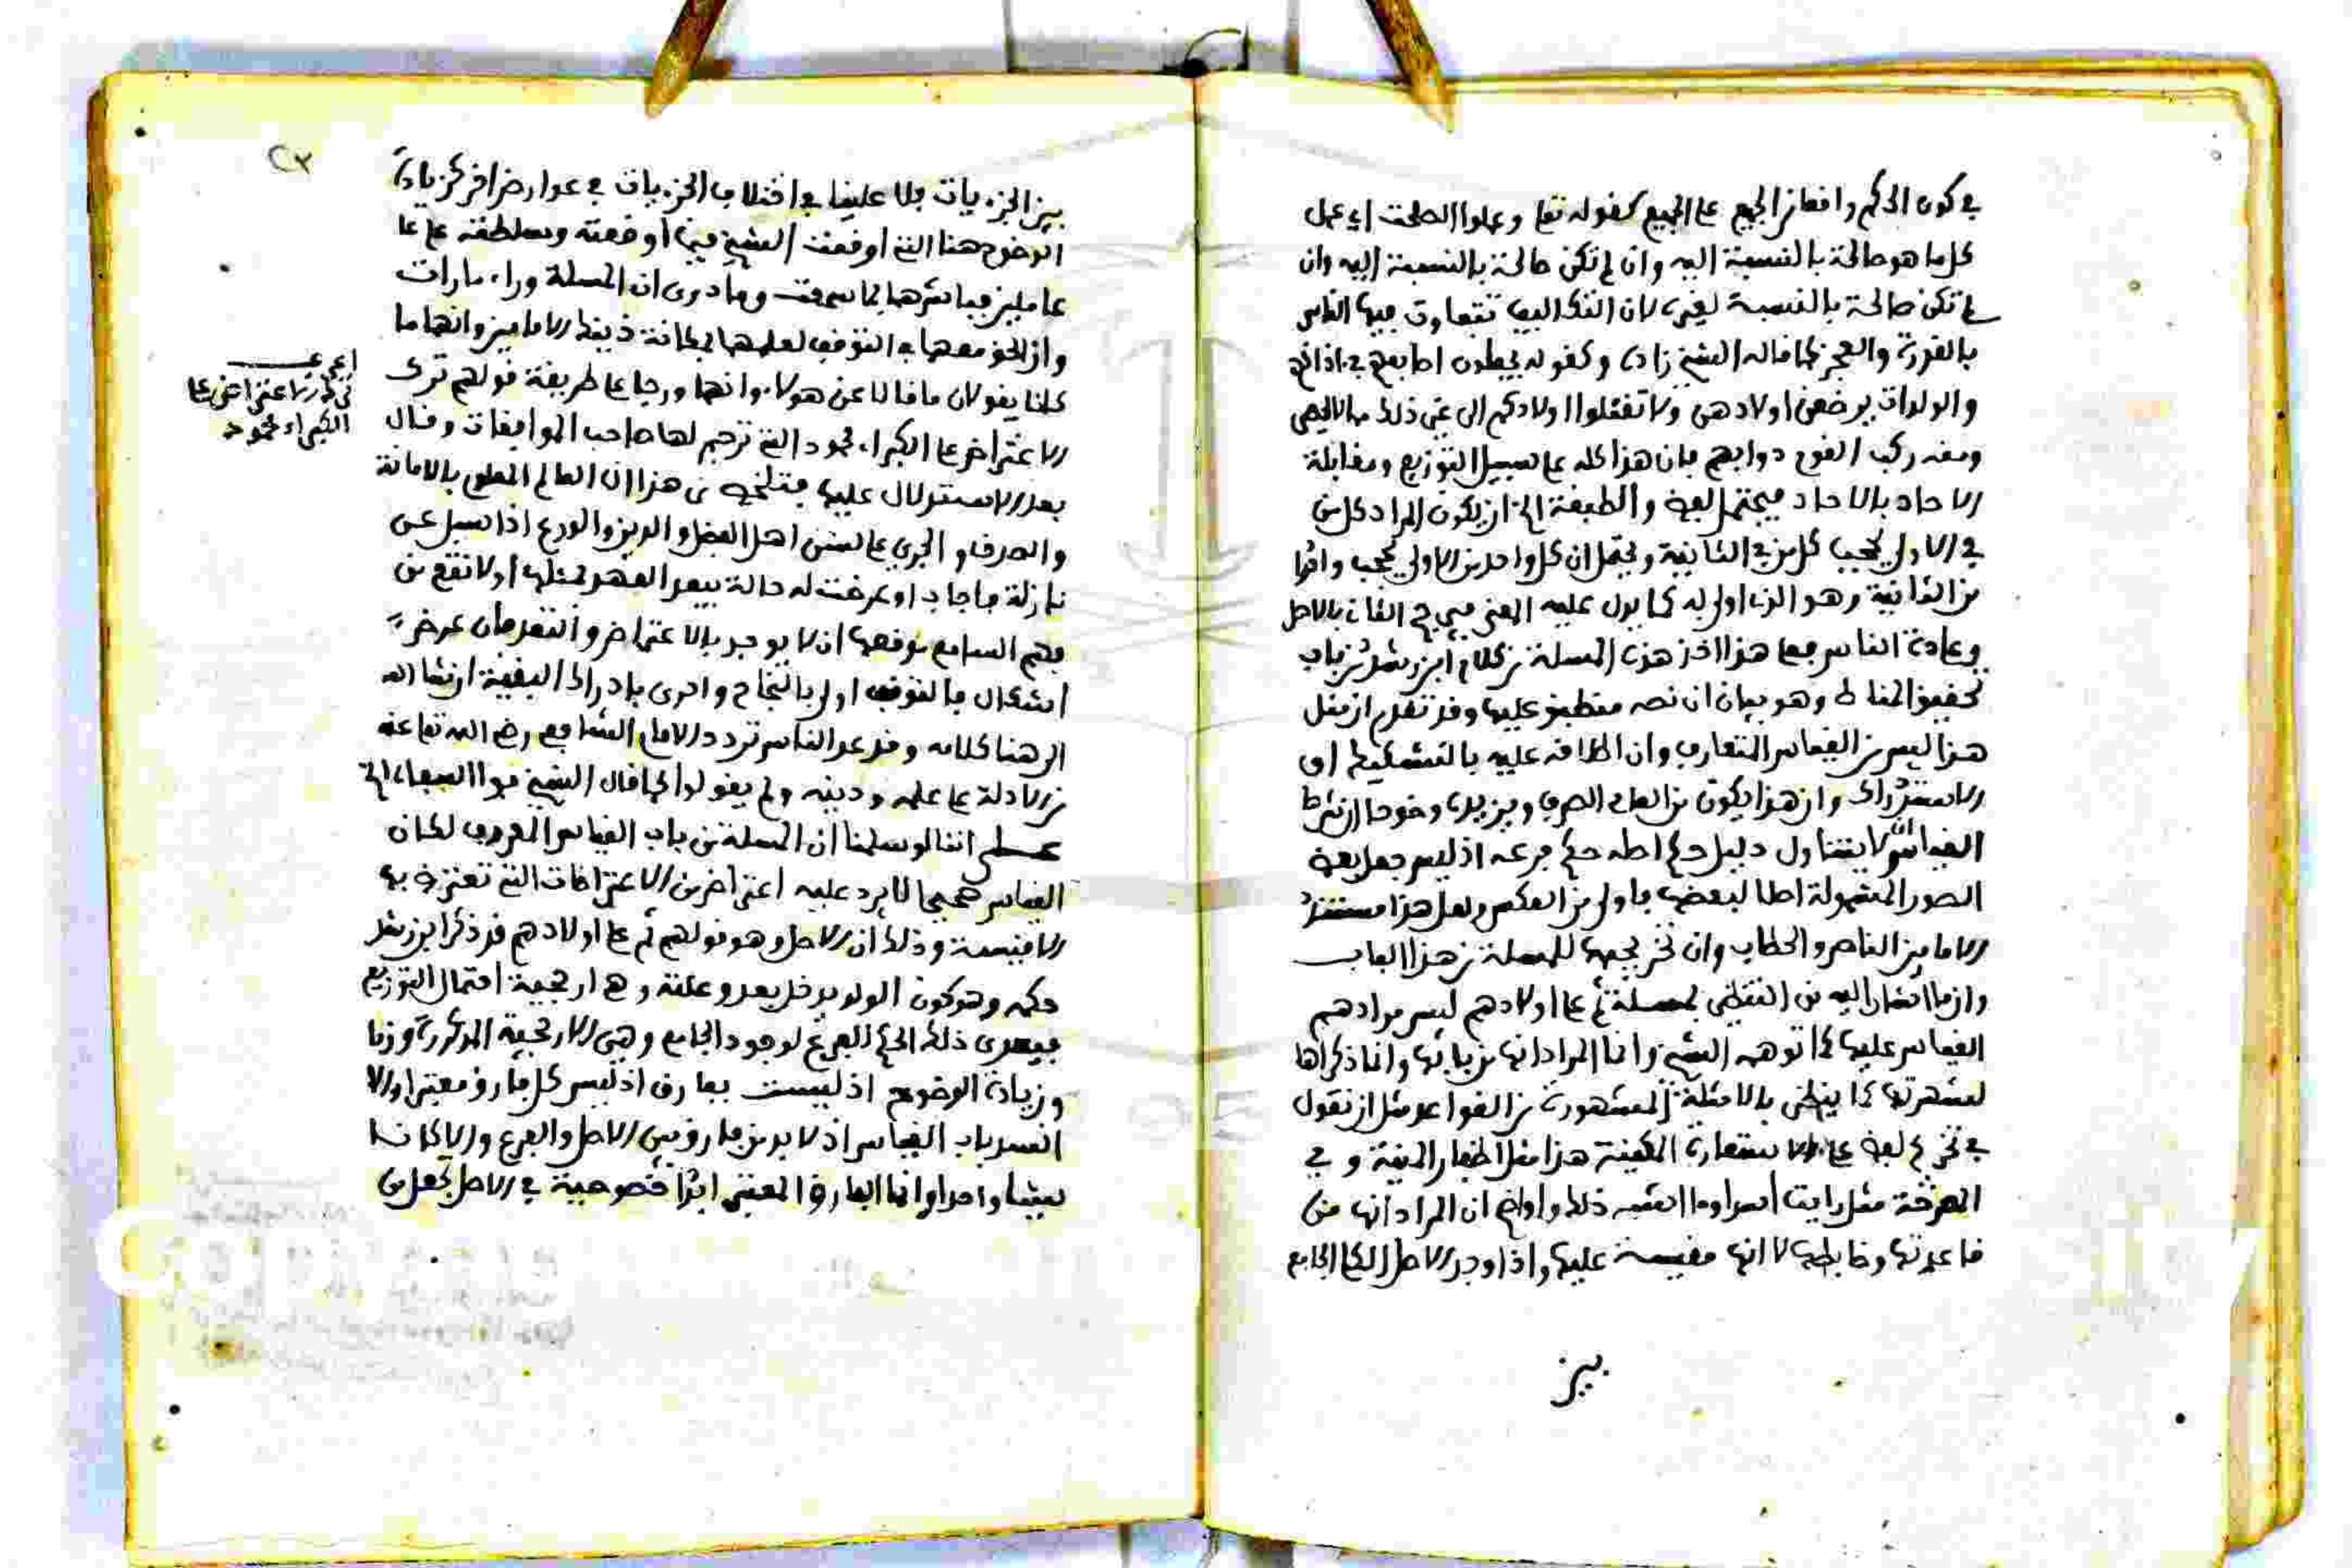 في كون الحكم واقعا من الجميع على الجميع كقوله تعالى وعملوا الصلحت اي عمل
كل ما هو صالحة بالنسبة اليه وان لم تكن صالحة بالنسبة اليه وان
لم تكن صالحة بالنسبة لغيره لان التكاليف تتفاوت فيها الناس
بالقدرة والعجز كما قاله الشيخ زاده وكقوله يجعلون اصابعهم في اذانهم
والولدات يرضعن اولادهن ولا تقتلوا اولادكم الى غير ذلك مما لا يحصى
ومنه ركب القوم دوابهم فان هذا كله على سبيل التوزيع ومقابلة
الاحاد بالاحاد فيحتمل لفظ والطبقة الخ ان يكون المراد كل من
في الاولى يحجب كل من في الثانية ويحتمل ان كل واحد من الاولى يحجب واحدا
من الثانية وهو الذي اولى له كما يدل عليه المعنى في الثاني بالاصل
وعادة الناس فيها هذا اخذ هذه المسلة من كلام ابن رشد من باب
تحقيق المناط وهو بيان ان نصه منطبق عليها وقد تقدم ان مثل
هذا ليس من القياس المتعارف وان اطلاقه عليه بالتشكيك او
الاشتراك وان هذا يكون من العام الصرف ويزيده وضوحا ان شرط
القياس ان لا يتناول دليل حكم اصله حكم فرعه اذ ليس جعل بعض
الصور المشمولة اصلا لبعضها باولى من العكس ولعل هذا مستند
الامامين الناصر والحطاب وان تخريجها للمسلة من هذا الباب
وان ما اشار اليه من التنظير بمسلة ثم على اولادهم ليس مرادهم
القياس عليها كما توهمه الشيخ وانما المراد انها من بابها وانما ذكراها
لشهرتها كما ينظر بالامثلة المشهورة من القواعد مثل ان تقول
في تخريج لفظ على الاستعارة المكنية هذا مثل اظفار المنية وفي
المصرحة مثل رايت اسدا وما اشبه ذلك واوضح ان المراد انها من
قاعدتها وضابطها لا انها مقيسة عليها واذا وجد الاصل الكلي الجامع
بين
٢٣
بين الجزءيات فلا علينا في اختلاف الجزءيات في عوارض اخر كزيادة
الوضوح هنا التي اوقعت الشيخ فيما اوقعته وسلطته على
عاملين فباشرهما بما سمعت وما دوى ان المسلة وراء مارات
وان الحق معهما في التوقف لعلمهما بمكانة ذينك الامامين وانهما ما
كانا يقولان ما قالا عن هولاء وانهما ورجا على طريقة قولهم ترك
الاعتراض على الكبراء محمود التي ترجم لها صاحب الموافقات وقال
اعرف
ترك الاعتراض على
الكبراء محمود
بعد الاستدلال عليها فتلخص من هذا ان العالم المعلوم بالامانة
والصدق والجري على سنن اهل الفضل والدين والورع اذا سئل عن
نازلة فاجاب او عرضت له حالة يبعد العهد بمثلها او لا تقع من
فهم السامع موقعها ان لا يوجه بالاعتراض والنقد فان عرض
اشكال فالتوقف اولى بالنجاح واحرى بادراك البغية ان شا الله
الى هنا كلامه وقد عد الناس تردد الامام الشافعي رضي الله تعا عنه
من الادلة على علمه ودينه ولم يقولوا كما قال الشيخ
على اننا لو سلمنا ان المسلة من باب القياس المعروف لكان
القياس صحيحا لا يرد عليه اعتراض من الاعتراضات التي تعترض بها
الاقيسة وذلك ان الاصل وهو قولهم ثم على اولادهم قد ذكر ابن رشد
حكمه وهو كون الولد يدخل بعد وعلته وهي ارجحية احتمال التوزيع
فيعدى ذلك الحكم للفرع لوجود الجامع وهي الارجحية المذكورة
وزيادة الوضوح اذ ليست بفارق اذ ليس كل فارق معتبرا والا
انسد باب القياس اذ لا بد من فارق بين الاصل والفرع والا كانا
شيئا واحدا وانما الفارق المعتبر ابدا خصوصية في الاصل تجعل من